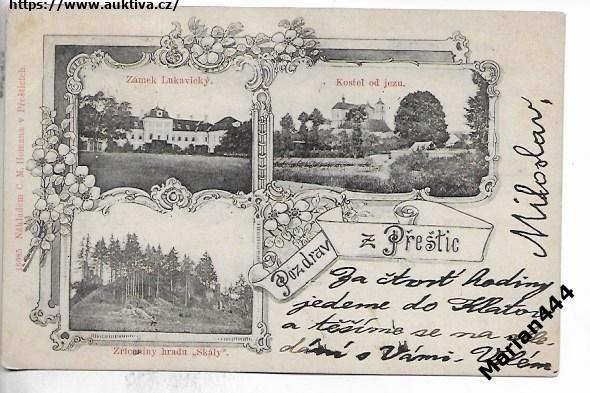 https://www.auktiva.cz/
Zámek Lukavický.
Kostel od jezu.
Zříceniny hradu „Skály".
Nákladem C. M. Homana v Přešticích.
Pozdrav
z Přeštic
Za čtvrt hodiny
jedeme do Klatov
a těšíme se na
s Vámi.
Miloslav,
Marian444